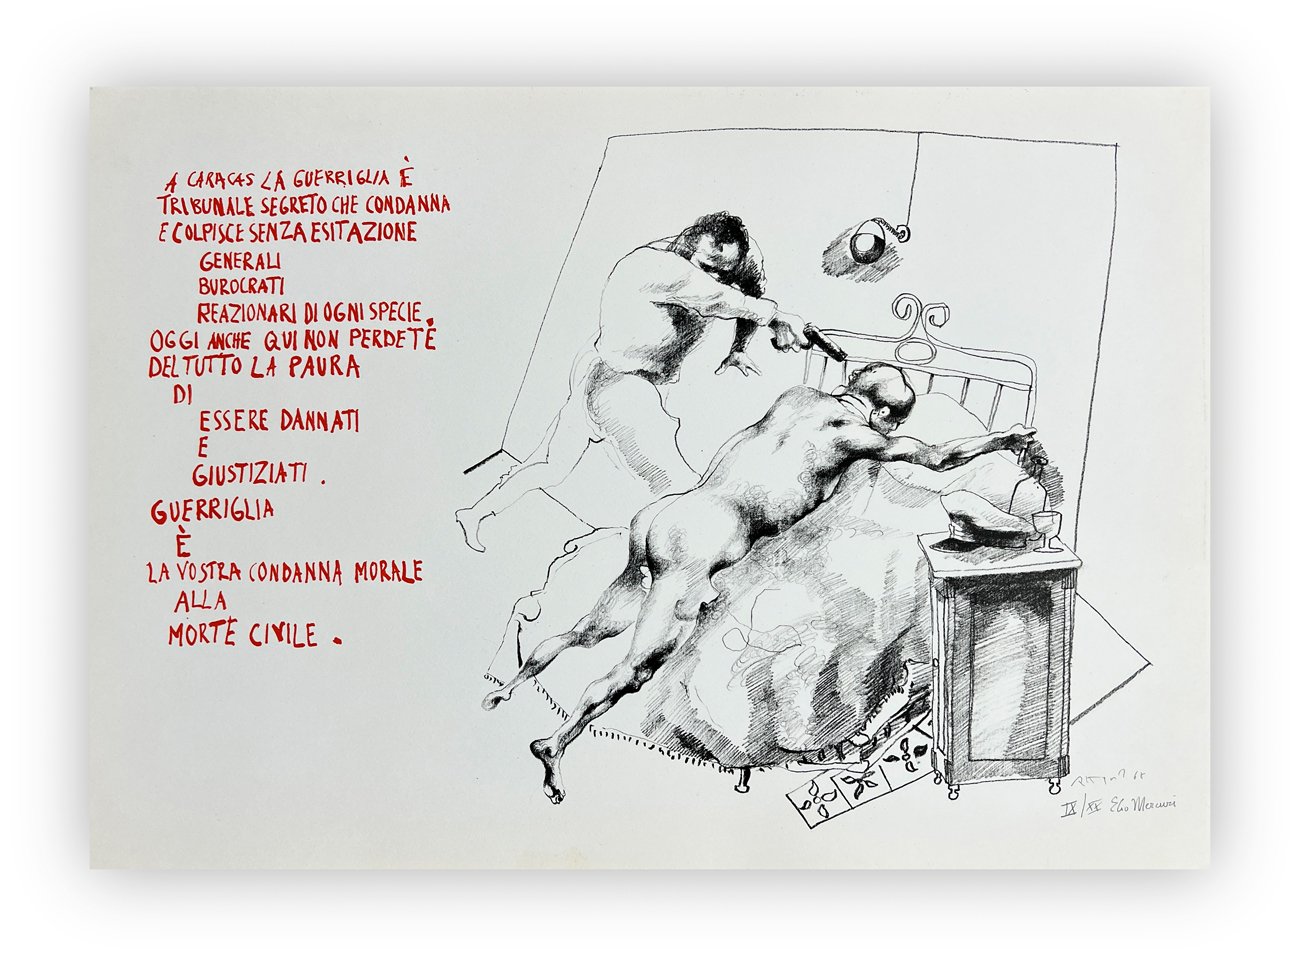 A CARACAS LA GUERRIGLIA È
TRIBUNALE SEGRETO CHE CONDANNA
E COLPISCE SENZA ESITAZIONE
GENERALI
BUROCRATI
REAZIONARI DI OGNI SPECIE.
OGGI ANCHE QUI NON PERDETE
DEL TUTTO LA PAURA
DI
ESSERE DANNATI
E
GIUSTIZIATI.
GUERRIGLIA
È
LA VOSTRA CONDANNA MORALE
ALLA
MORTE CIVILE.
IX/XX Elio Mercuri